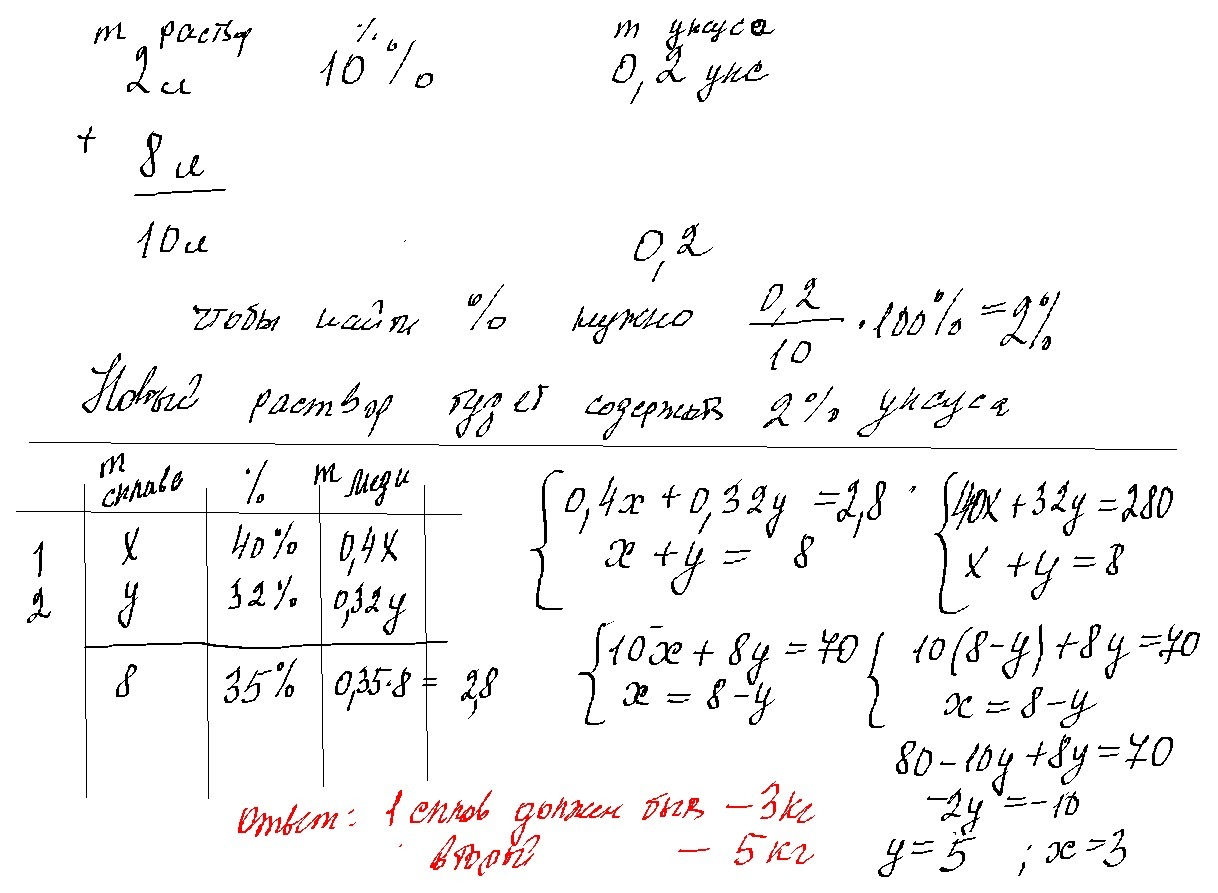 m раствор % m уксуса
2л 10% 0,2 укс
+ 8л
10л 0,2
чтобы найти % нужно 0,2/10 · 100% = 2%
Новый раствор будет содержать 2% уксуса
m сплава % m меди
1 x 40% 0,4x
2 y 32% 0,32y
8 35% 0,35·8 = 2,8
{0,4x + 0,32y = 2,8 {40x + 32y = 280
x + y = 8 x + y = 8
{10x + 8y = 70 {10(8-y) + 8y = 70
x = 8-y x = 8-y
80-10y+8y=70
-2y = -10
y = 5 ; x = 3
Ответ: 1 сплав должен быть – 3кг
второй – 5кг